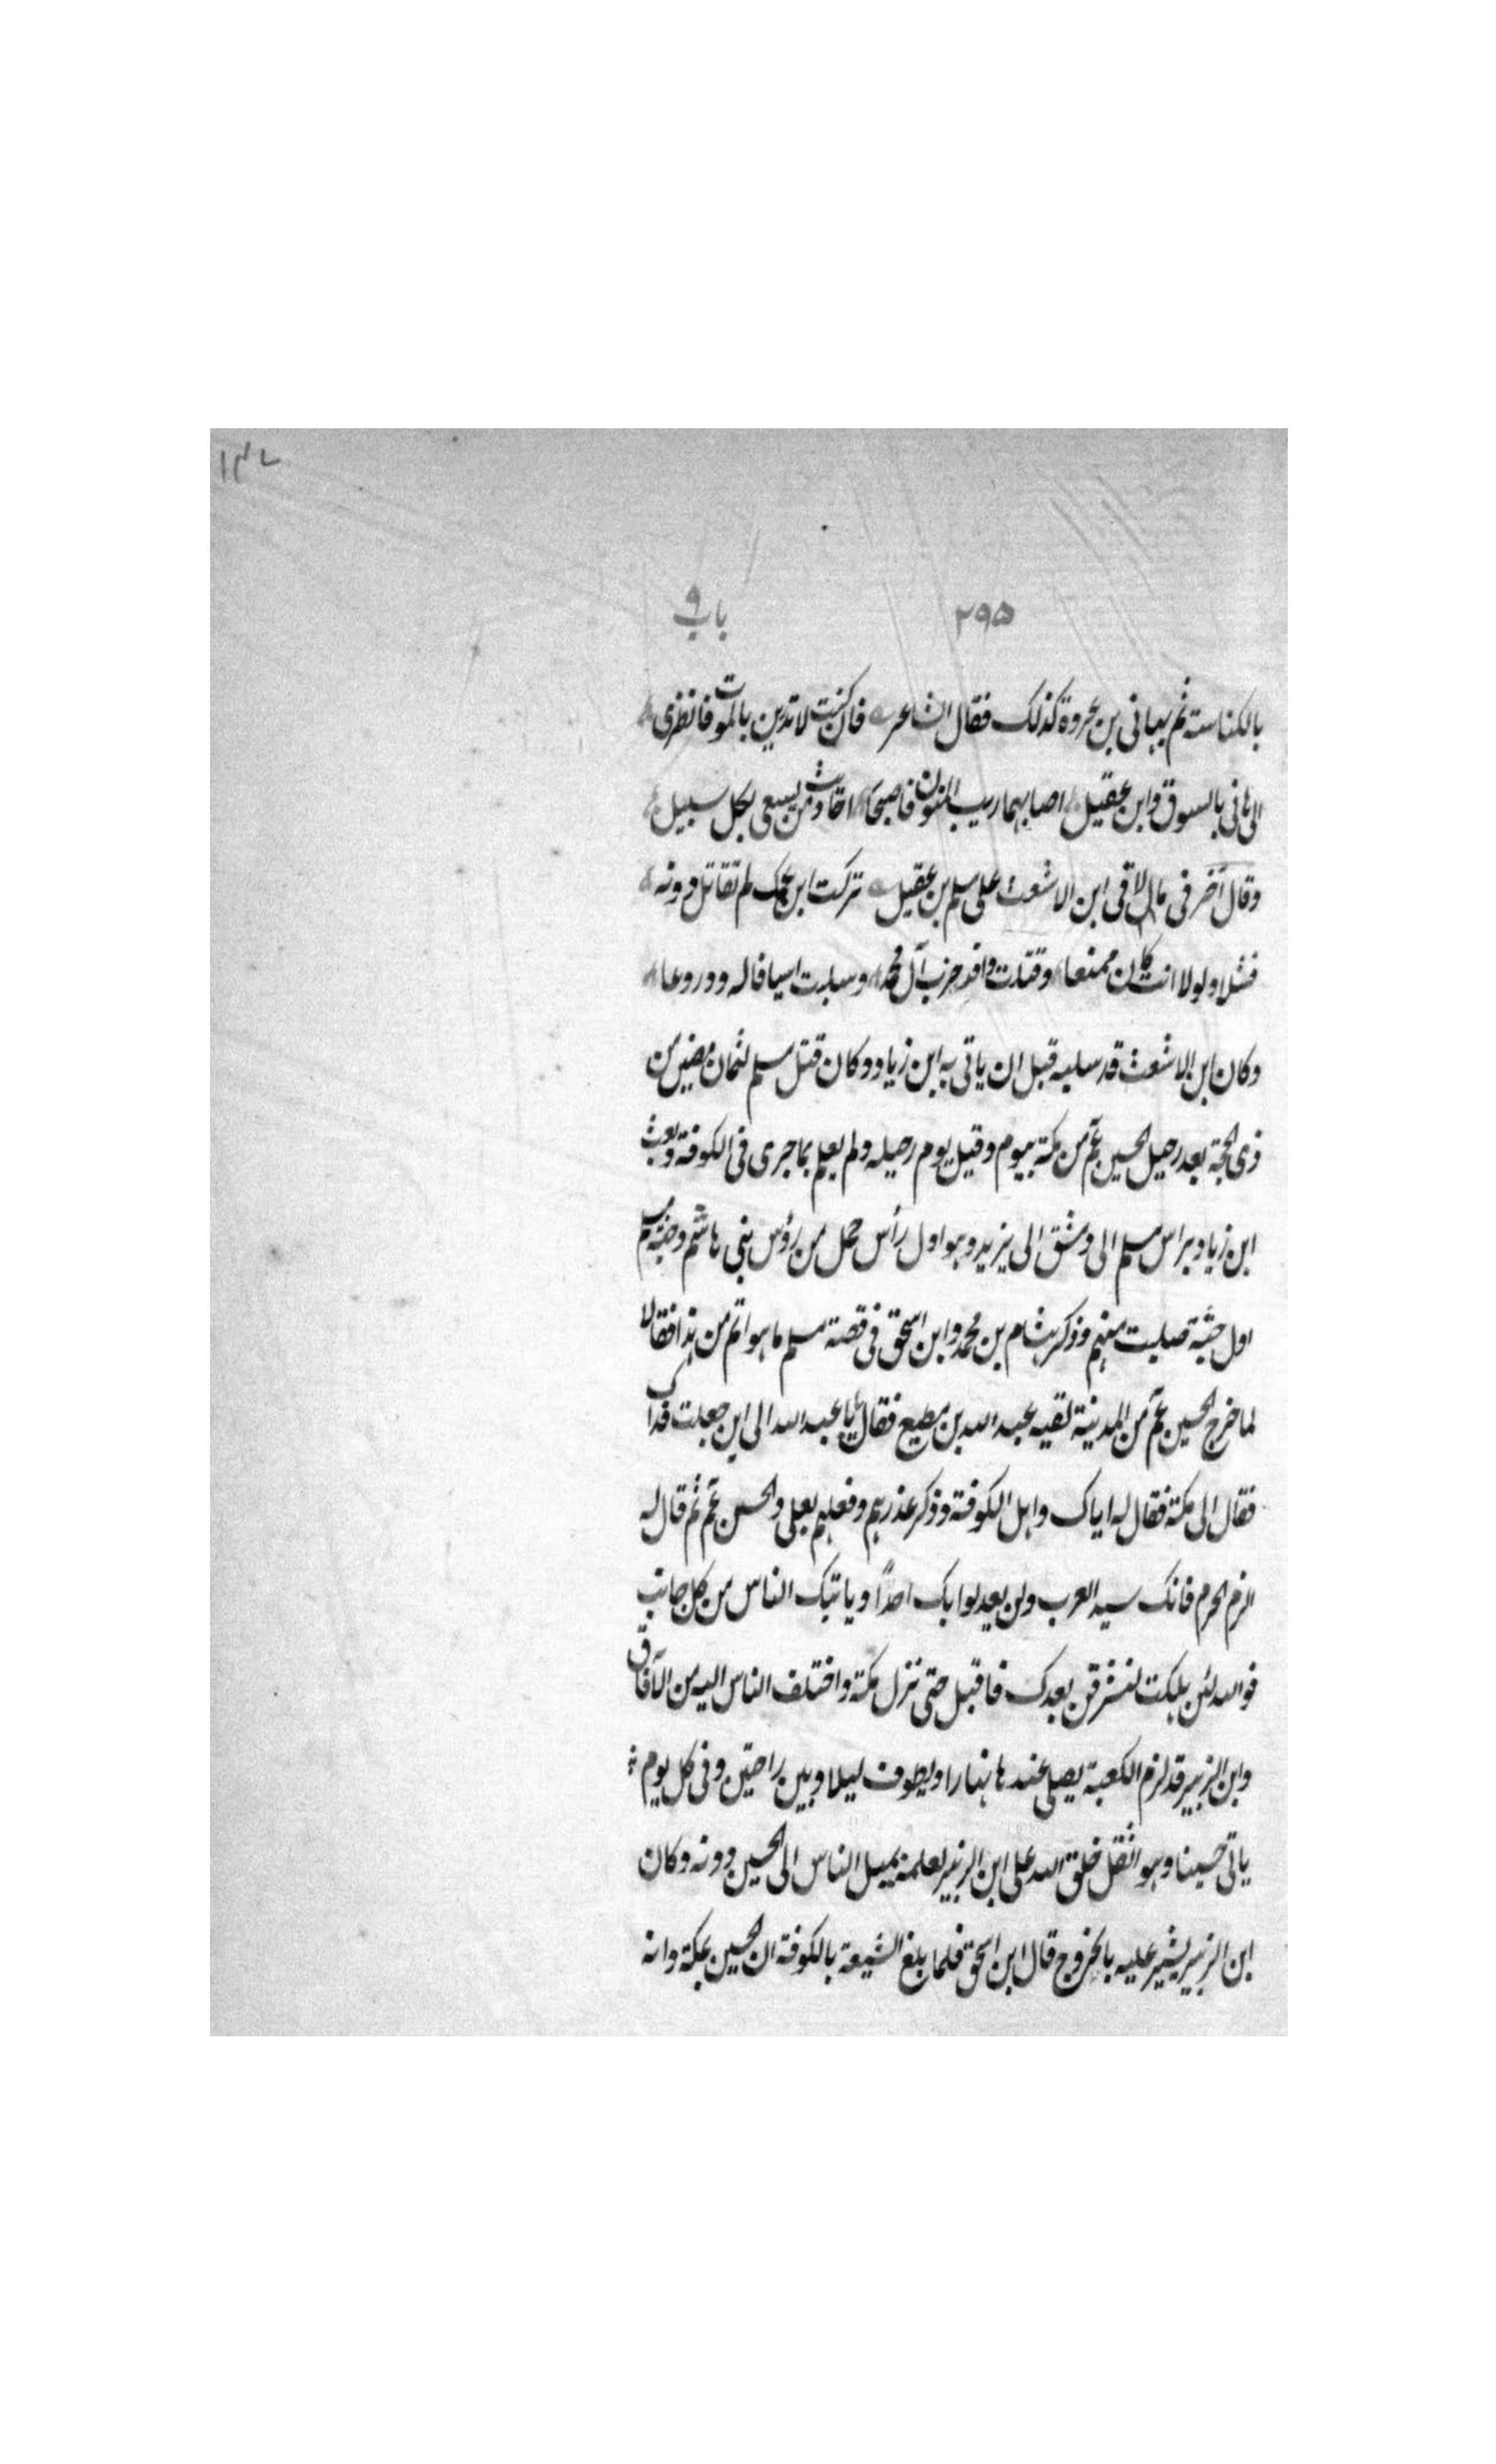 ١٣٧
٢٩٥ باب ٩
بالكناسته ثم بهانى بن عروة كذلك فقال الشاعر فان كنت لا تدرين بالموت فانظرى
الى هانى بالسوق وابن عقيل اصابهما ريب المنون فاصبحا احاديث من يسعى بكل سبيل
وقال آخر فى مالاقى ابن الاشعث على مسلم بن عقيل تركت ابن عمك لم تقاتل دونه
فشلا ولولا انت كان ممنعا وقتلت وافد حزب آل محمد وسلبت اسيافا له ودروعا
وكان ابن الاشعث قد سلبه قبل ان ياتى به ابن زياد وكان قتل مسلم لثمان مضين من
ذى الحجة بعد رحيل الحسين عم من مكة بيوم وقيل يوم رحيله ولم يعلم بما جرى فى الكوفة وبعث
ابن زياد براس مسلم الى دمشق الى يزيد وهو اول رأس حمل من رؤس بنى هاشم وجثة مسلم
اول جثة صلبت منهم وذكر هشام بن محمد وابن اسحق فى قصة مسلم ما هو اتم من هذا فقالا
لما خرج الحسين عم من المدينة لقيه عبد الله بن مطيع فقال يا با عبد الله الى اين جعلت فداك
فقال الى مكة فقال له اياك واهل الكوفة وذكر غدرهم وفعلهم بعلى والحسن عم ثم قال له
الزم الحرم فانك سيد العرب ولن يعدلوا بك احدًا وياتيك الناس من كل جانب
فوالله لئن هلكت لنسترقن بعدك فاقبل حتى نزل مكة واختلف الناس اليه من الآفاق
وابن الزبير قد لزم الكعبة يصلى عندها نهارا ويطوف ليلا وبين راحتين وفى كل يوم
ياتى حسينا وهو اثقل خلق الله على ابن الزبير لعلمه بميل الناس الى الحسين دونه وكان
ابن الزبير يشير عليه بالخروج قال ابن اسحق فلما بلغ الشيعة بالكوفة ان الحسين بمكة وانه